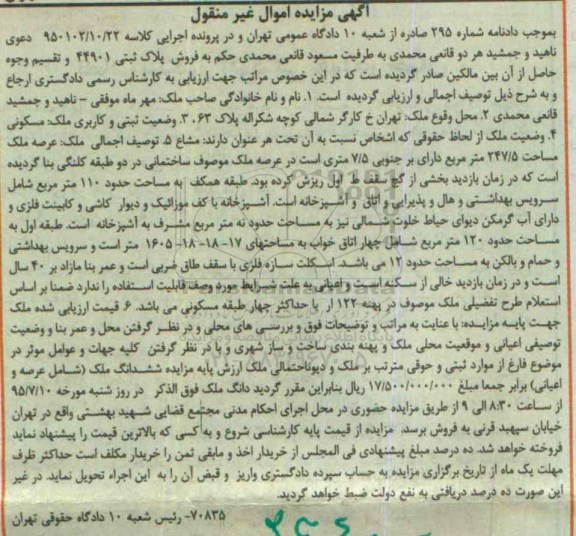 آگهی مزایده اموال غیر منقول
بموجب دادنامه شماره ۲۹۵ صادره از شعبه ۱۰ دادگاه عمومی تهران و در پرونده اجرایی کلاسه ۹۵۰۱۰۲/۱۰/۲۲ دعوی
ناهید و جمشید هر دو قانعی محمدی به طرفیت مسعود قانعی محمدی حکم به فروش پلاک ثبتی ۴۴۹۰۱ و تقسیم وجوه
حاصل از آن بین مالکین صادر گردیده است که در این خصوص مراتب جهت ارزیابی به کارشناس رسمی دادگستری ارجاع
و به شرح ذیل توصیف اجمالی و ارزیابی گردیده است. ۱. نام و نام خانوادگی صاحب ملک: مهر ماه موفقی – ناهید و جمشید
قانعی محمدی ۲. محل وقوع ملک: تهران خ کارگر شمالی کوچه شکراله پلاک ۶۳. ۳. وضعیت ثبتی و کاربری ملک: مسکونی
۴. وضعیت ملک از لحاظ حقوقی که اشخاص نسبت به آن تحت هر عنوان دارند: مشاع ۵. توصیف اجمالی ملک: عرصه ملک
مساحت ۲۴۷/۵ متر مربع دارای بر جنوبی ۷/۵ متری است در عرصه ملک موصوف ساختمانی در دو طبقه کلنگی بنا گردیده
است که در زمان بازدید بخشی از گچ سقف ط اول ریزش کرده بود. طبقه همکف به مساحت حدود ۱۱۰ متر مربع شامل
سرویس بهداشتی و هال و پذیرایی و اتاق و آشپزخانه است. آشپزخانه با کف موزائیک و دیوار کاشی و کابینت فلزی و
دارای آب گرمکن دیوای حیاط خلوت شمالی نیز به مساحت حدود نه متر مربع مشرف به آشپزخانه است. طبقه اول به
مساحت حدود ۱۲۰ متر مربع شامل چهار اتاق خواب به مساحتهای ۱۷-۱۸-۱۸- ۱۶۰۵ متر است و سرویس بهداشتی
و حمام و بالکن به مساحت حدود ۱۲ می باشد. اسکلت سازه فلزی با سقف طاق ضربی است و عمر بنا مازاد بر ۴۰ سال
است و در زمان بازدید خالی از سکنه است و اعیانی به علت شرایط مورد وصف قابلیت استفاده را ندارد ضمنا بر اساس
استعلام طرح تفضیلی ملک موصوف در پهنه ۱۲۲ ار با حداکثر چهار طبقه مسکونی می باشد. ۶. قیمت ارزیابی شده ملک
جهت پایه مزایده: با عنایت به مراتب و توضیحات فوق و بررسی های محلی و در نظر گرفتن محل و عمر بنا و وضعیت
توصیفی اعیانی و موقعیت محلی ملک و پهنه بندی ساخت و ساز شهری و با در نظر گرفتن کلیه جهات و عوامل موثر در
موضوع فارغ از موارد ثبتی و حوقی مترتب بر ملک و دیوناحتمالی ملک ارزش پایه مزایده ششدانگ ملک (شامل عرصه و
اعیانی) برابر جمعا مبلغ ۱۷/۵۰۰/۰۰۰/۰۰۰ ریال بنابراین مقرر گردید دانگ ملک فوق الذکر در روز شنبه مورخه ۹۵/۷/۱۰
از ساعت ۸:۳۰ الی ۹ از طریق مزایده حضوری در محل اجرای احکام مدنی مجتمع قضایی شهید بهشتی واقع در تهران
خیابان سپهبد قرنی به فروش برسد. مزایده از قیمت پایه کارشناسی شروع و به کسی که بالاترین قیمت را پیشنهاد نماید
فروخته خواهد شد. ده درصد مبلغ پیشنهادی فی المجلس از خریدار اخذ و مابقی ثمن را خریدار مکلف است حداکثر ظرف
مهلت یک ماه از تاریخ برگزاری مزایده به حساب سپرده دادگستری واریز و قبض آن را به این اجراء تحویل نماید. در غیر
این صورت ده درصد دریافتی به نفع دولت ضبط خواهد گردید.
۷۰۸۳۵- رئیس شعبه ۱۰ دادگاه حقوقی تهران